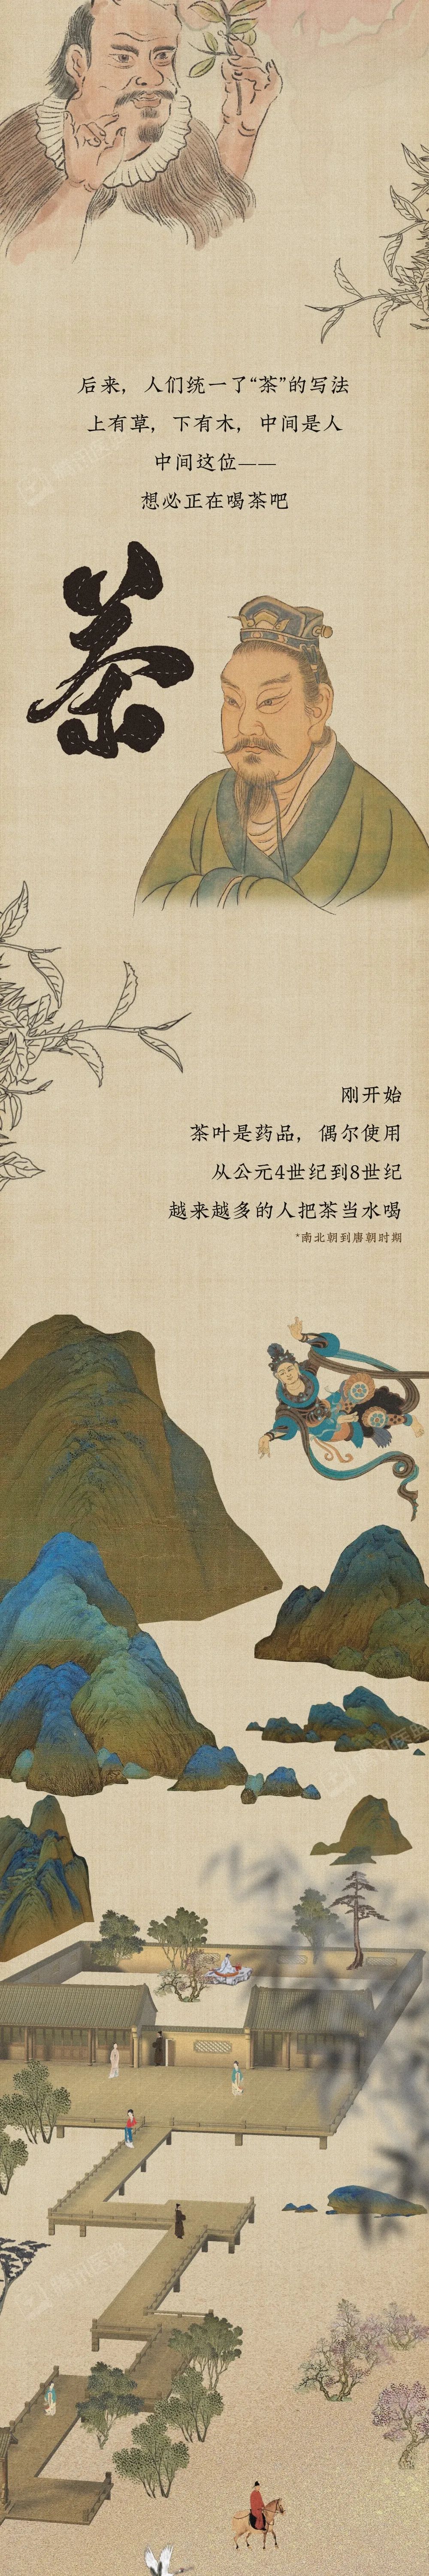 后来，人们统一了“茶”的写法
上有草，下有木，中间是人
中间这位——
想必正在喝茶吧
茶
刚开始
茶叶是药品，偶尔使用
从公元4世纪到8世纪
越来越多的人把茶当水喝
*南北朝到唐朝时期